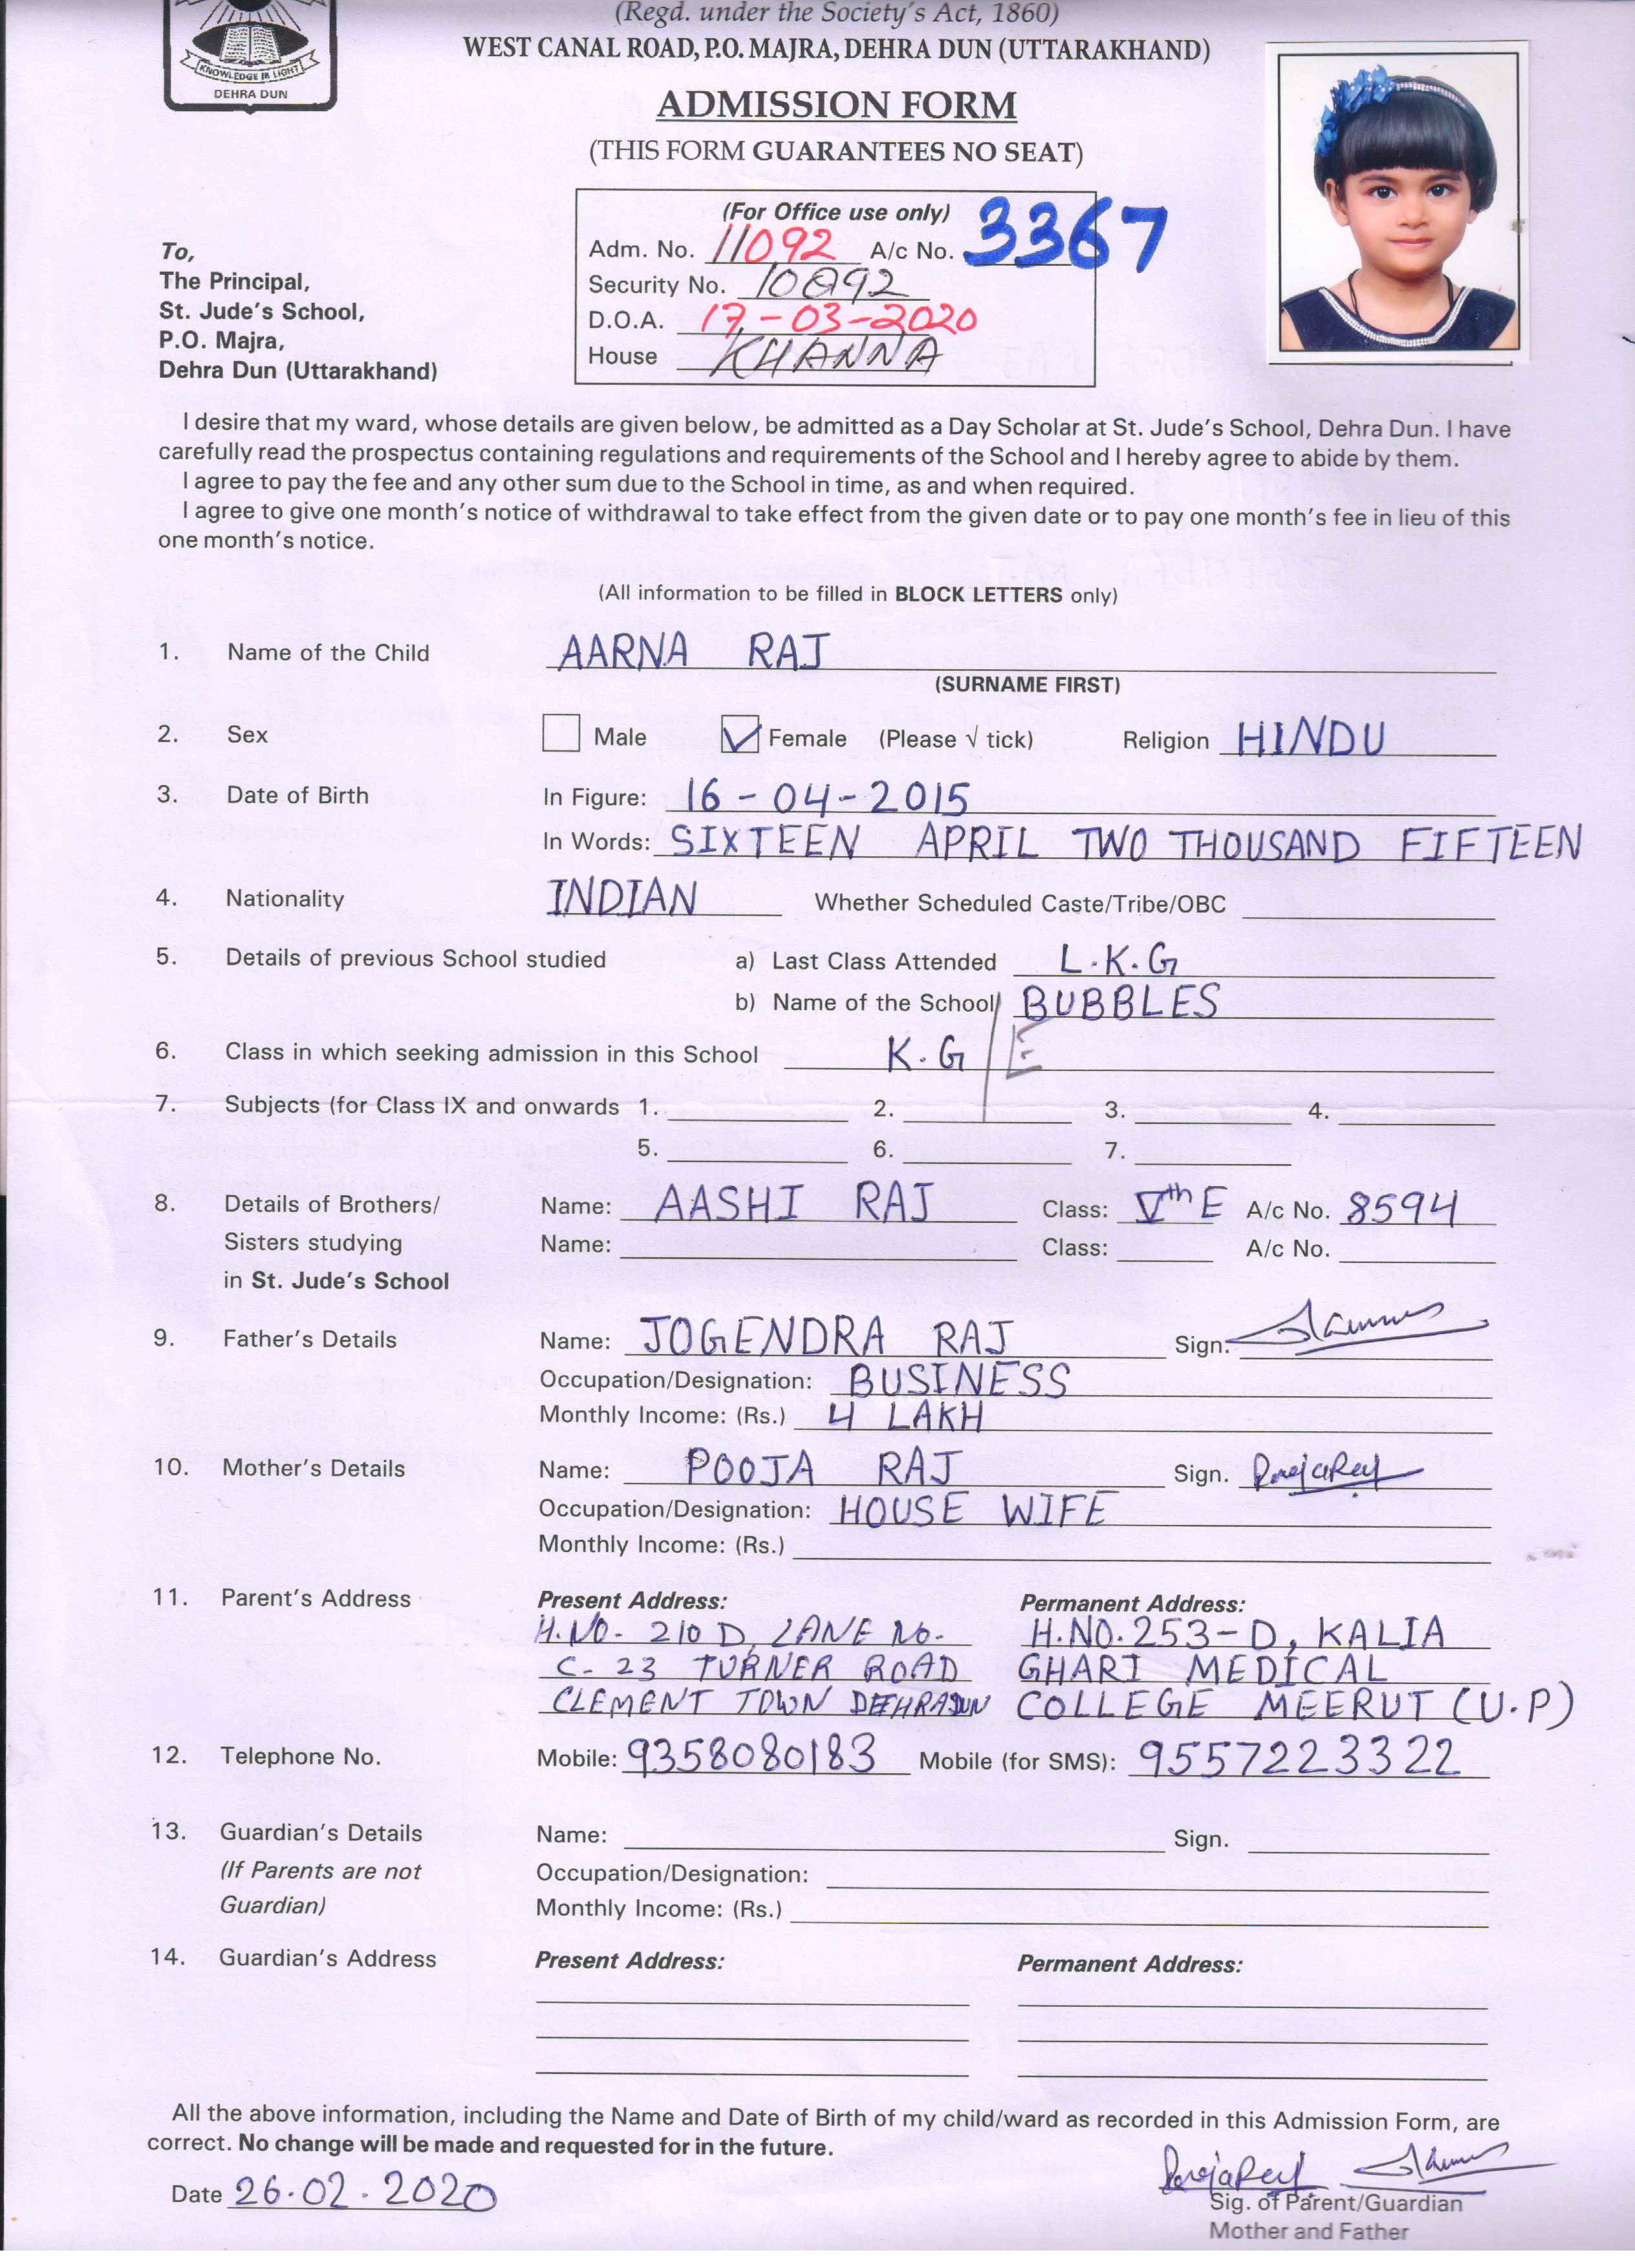 (Regd. under the Society's Act, 1860)
WEST CANAL ROAD, P.O. MAJRA, DEHRA DUN (UTTARAKHAND)
KNOWLEDGE IS LIGHT
DEHRA DUN
ADMISSION FORM
(THIS FORM GUARANTEES NO SEAT)
(For Office use only)
Adm. No. 11092 A/c No. 3367
Security No. 10892
D.O.A. 17-03-2020
House KHANNA
To,
The Principal,
St. Jude's School,
P.O. Majra,
Dehra Dun (Uttarakhand)
I desire that my ward, whose details are given below, be admitted as a Day Scholar at St. Jude's School, Dehra Dun. I have
carefully read the prospectus containing regulations and requirements of the School and I hereby agree to abide by them.
I agree to pay the fee and any other sum due to the School in time, as and when required.
I agree to give one month's notice of withdrawal to take effect from the given date or to pay one month's fee in lieu of this
one month's notice.
(All information to be filled in BLOCK LETTERS only)
1. Name of the Child AARNA RAJ
(SURNAME FIRST)
2. Sex Male Female (Please √ tick) Religion HINDU
3. Date of Birth In Figure: 16-04-2015
In Words: SIXTEEN APRIL TWO THOUSAND FIFTEEN
4. Nationality INDIAN Whether Scheduled Caste/Tribe/OBC
5. Details of previous School studied a) Last Class Attended L.K.G
b) Name of the School BUBBLES
6. Class in which seeking admission in this School K.G / E
7. Subjects (for Class IX and onwards 1. 2. 3. 4.
5. 6. 7.
8. Details of Brothers/ Name: AASHI RAJ Class: Vth E A/c No. 8594
Sisters studying Name: Class: A/c No.
in St. Jude's School
9. Father's Details Name: JOGENDRA RAJ Sign.
Occupation/Designation: BUSINESS
Monthly Income: (Rs.) 4 LAKH
10. Mother's Details Name: POOJA RAJ Sign. PoojaRaj
Occupation/Designation: HOUSE WIFE
Monthly Income: (Rs.)
11. Parent's Address Present Address: Permanent Address:
H.NO. 210 D, LANE NO. H.NO. 253-D, KALIA
C-23 TURNER ROAD GHARI MEDICAL
CLEMENT TOWN DEHRADUN COLLEGE MEERUT (U.P)
12. Telephone No. Mobile: 9358080183 Mobile (for SMS): 9557223322
13. Guardian's Details Name: Sign.
(If Parents are not Occupation/Designation:
Guardian) Monthly Income: (Rs.)
14. Guardian's Address Present Address: Permanent Address:
All the above information, including the Name and Date of Birth of my child/ward as recorded in this Admission Form, are
correct. No change will be made and requested for in the future.
Date 26.02.2020 PoojaRaj
Sig. of Parent/Guardian
Mother and Father